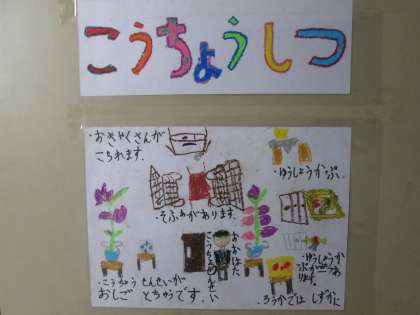 こうちょうしつ
・おきゃくさんが
こられます。
・ゆうしょうかっぷ。
・そふぁがあります。
おおはた
こうちょうせんせい
・ゆうしょうか
っぷがあ
ります。
・こうちょうせんせいが
おしごとちゅうです。
・ろうかではしずかに